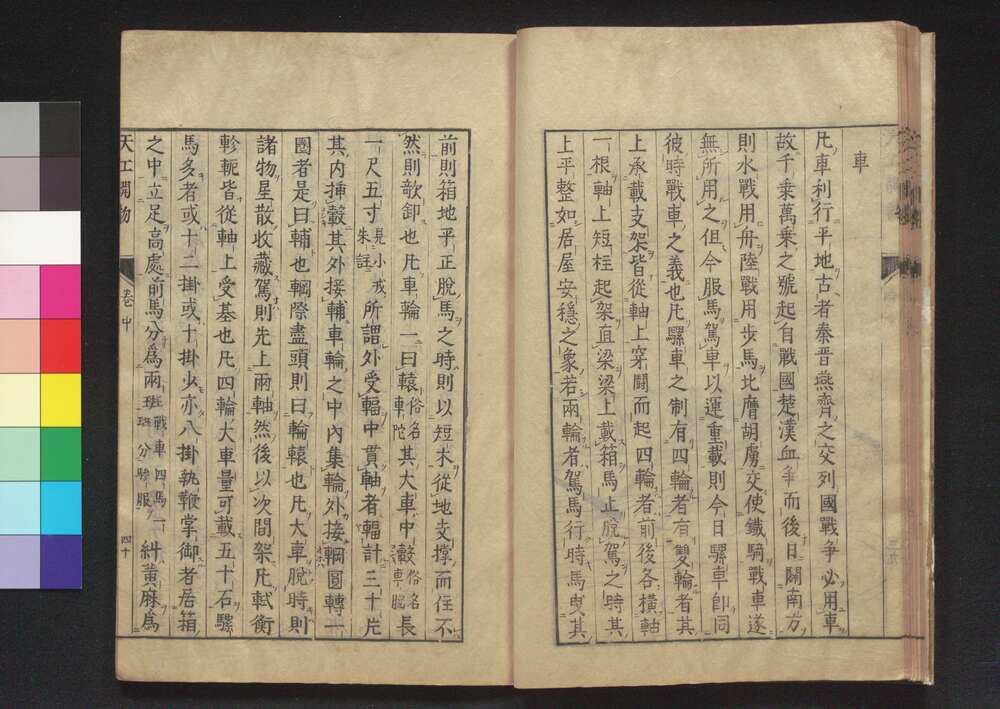 車
凡車利行平地古者秦晉燕齊之交列國戰爭必用車
故千乗萬乗之號起自戰國楚漢血爭而後日闢南方
則水戰用舟陸戰用步馬北膺胡虜交使鐵騎戰車遂
無所用之但今服馬駕車以運重載則今日騾車即同
彼時戰車之義也凡騾車之制有四輪者有雙輪者其
上承載支架皆從軸上穿鬭而起四輪者前後各橫軸
一根軸上短柱起架直梁梁上載箱馬止脫駕之時其
上平整如居屋安穩之象若兩輪者駕馬行時馬曳其
前則箱地平正脫馬之時則以短木從地支撐而住不
然則欹卸也凡車輪一曰轅俗名車陀其大車中轂俗名車腦長
一尺五寸見小戎朱註所謂外受輻中貫軸者輻計三十片
其內插轂其外接輔車輪之中內集輪外接輞圓轉一
圈者是曰輔也輞際盡頭則曰輪轅也凡大車脫時則
諸物星散收藏駕則先上兩軸然後以次間架凡軾衡
軫軛皆從軸上受基也凡四輪大車量可載五十石騾
馬多者或十二掛或十掛少亦八掛執鞭掌御者居箱
之中立足高處前馬分爲兩班戰車四馬一班分驂服糾黄麻爲
天工開物
卷中
四十